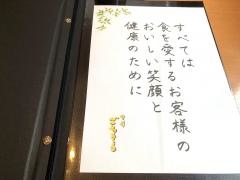 すべては
食を愛するお客様の
おいしい笑顔と
健康のために